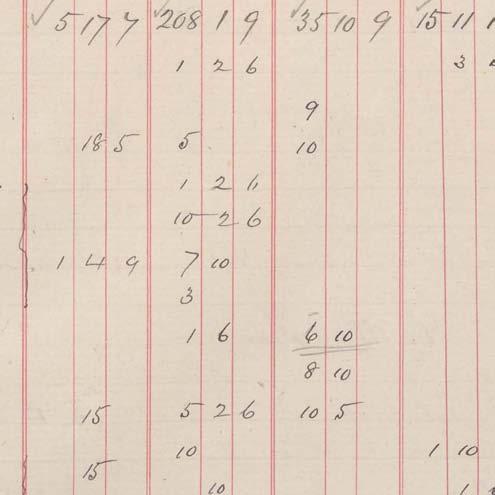 ✓ 5 17 7 ✓ 208 1 9 ✓ 35 10 9 ✓ 15 11
1 2 6 3
9
18 5 5 10
1 2 6
10 2 6
1 4 9 7 10
3
1 6 6 10
8 10
15 5 2 6 10 5
10 1 10
15 10 1